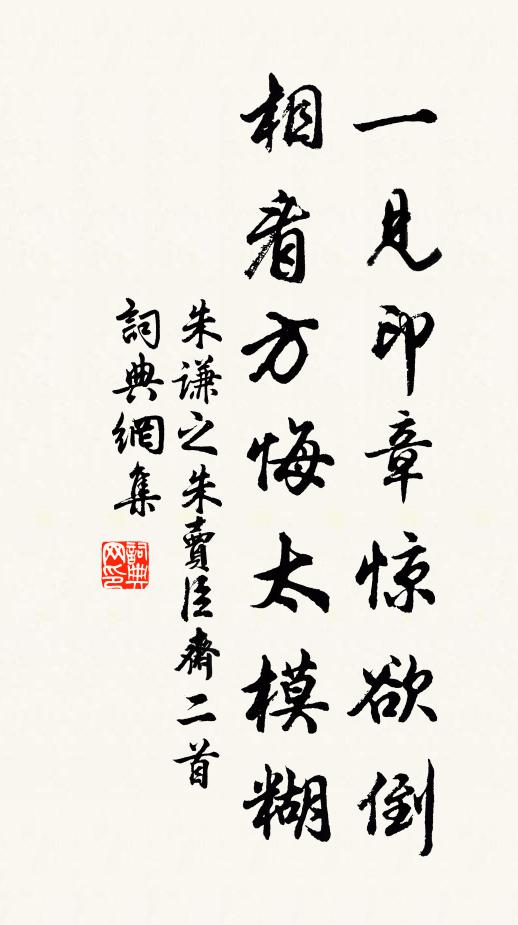 一見印章惊欲倒
相看方悔太模糊
朱谦之朱賣臣齋二首
詞典網集
詞典网印